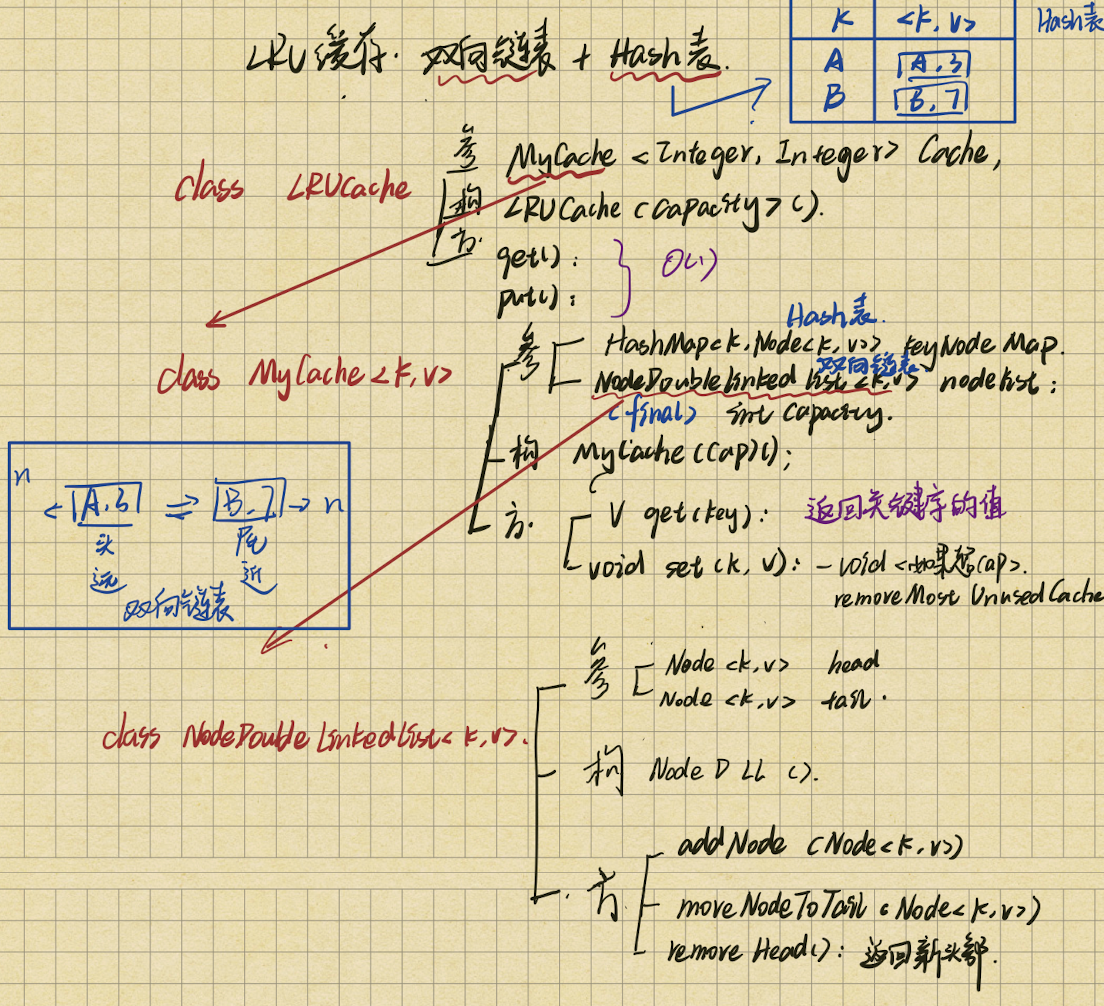 K <K,V> Hash表
LRU缓存. 双向链表 + Hash表.
A [A,3]
B [B,7]
class LRUCache
参 MyCache <Integer, Integer> Cache,
构 LRUCache (capacity) ().
方. get():
put():
O(1)
Hash表.
class MyCache<K,V>
参 HashMap<K,Node<K,V>> keyNodeMap.
双向链表
NodeDoubleLinkedList<K,V> nodeList;
(final) int capacity.
构 MyCache(Cap)();
方. V get(key): 返回关键字的值
void set(K,V): - void <如果超Cap>.
removeMostUnusedCache
n
← [A,3] ⇌ [B,7] → n
头 尾
远 近
双向链表
class NodeDoubleLinkedList<K,V>.
参 Node<K,V> head
Node<K,V> tail.
构 NodeDLL().
方. addNode (Node<K,V>)
moveNodeToTail(Node<K,V>)
removeHead(): 返回新头部.